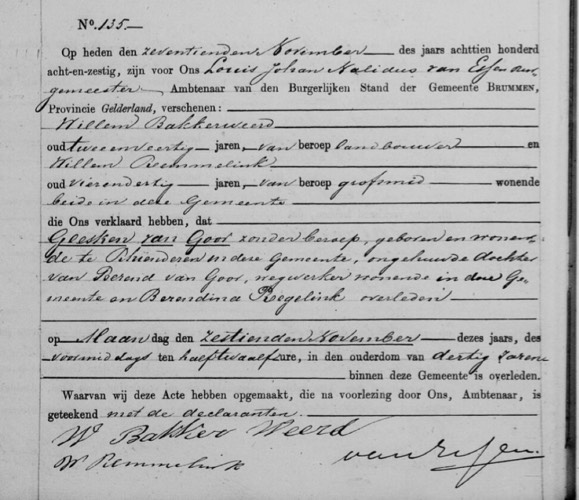 No. 135.
Op heden den zeventienden November des jaars achttien honderd
acht-en-zestig, zijn voor Ons Louis Johan Nalidus van Essen Bur-
gemeester Ambtenaar van den Burgerlijken Stand der Gemeente BRUMMEN,
Provincie Gelderland, verschenen:
Willem Bakkerweerd
oud tweeenveertig jaren, van beroep landbouwer en
Willem Remmelink
oud vierendertig jaren, van beroep grofsmid wonende
beide in deze Gemeente
die Ons verklaard hebben, dat
Geesken van Goor zonder beroep, geboren en wonen-
de te in deze Gemeente, ongehuwde dochter
van Berend van Goor, wegwerker wonende in deze Ge-
meente en Berendina Regelink overleden
op Maandag den zestienden November dezes jaars, des
voormiddags ten halftwaalf ure, in den ouderdom van dertig jaren
binnen deze Gemeente is overleden.
Waarvan wij deze Acte hebben opgemaakt, die na voorlezing door Ons, Ambtenaar, is
geteekend met de declaranten.
W Bakker Weerd
W Remmelink van Essen.